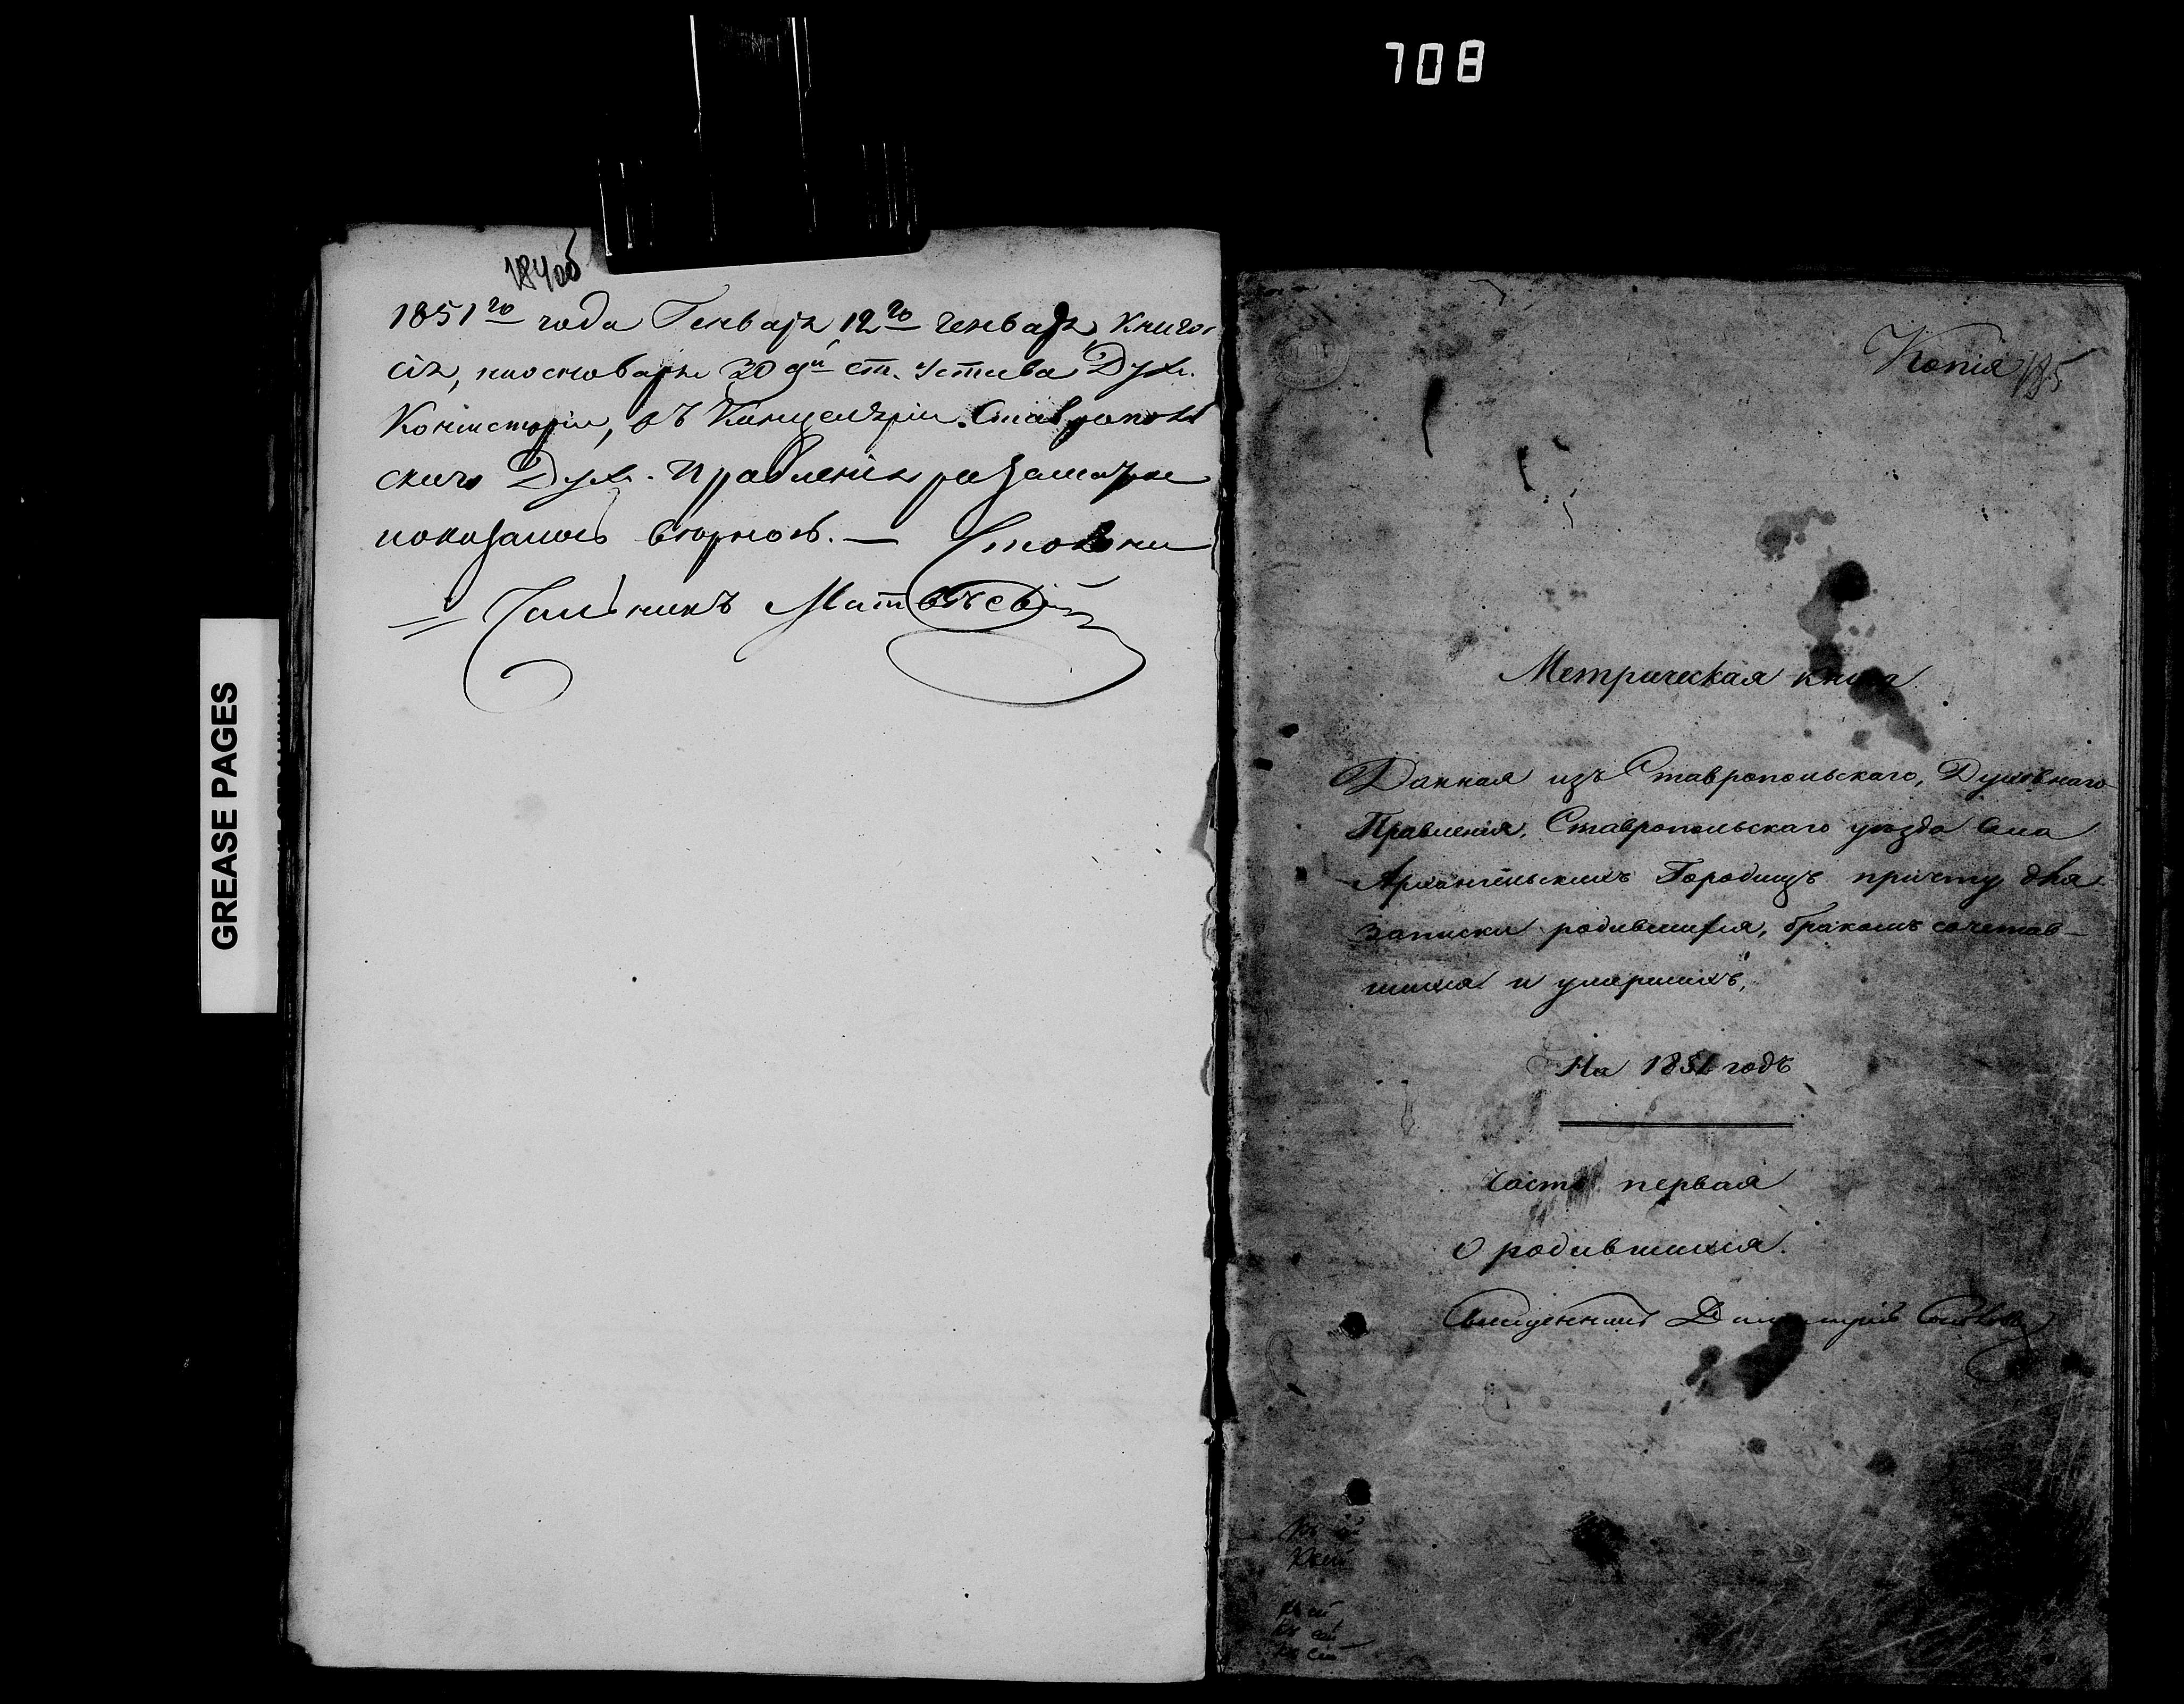 708
184об
1851го года Генваря 12го генваря книга
сія, на основаніи 30й ст. Устава Дух.
Консисторіи, въ Канцеляріи Ставрополь
скаго Дух. Правленія
показалось вѣрною. — Столона
= чальникъ Матвѣевъ
GREASE PAGES
Копія 185
Метрическая книга
Данная изъ Ставропольскаго, Духовнаго
Правленія, Ставропольскаго уѣзда села
Архангельскихъ Городищъ причту для
записки родившихся, бракомъ сочетав-
шихся и умершихъ,
На 1851 годъ
Часть первая
О родившихся.
Священникъ Димитрій